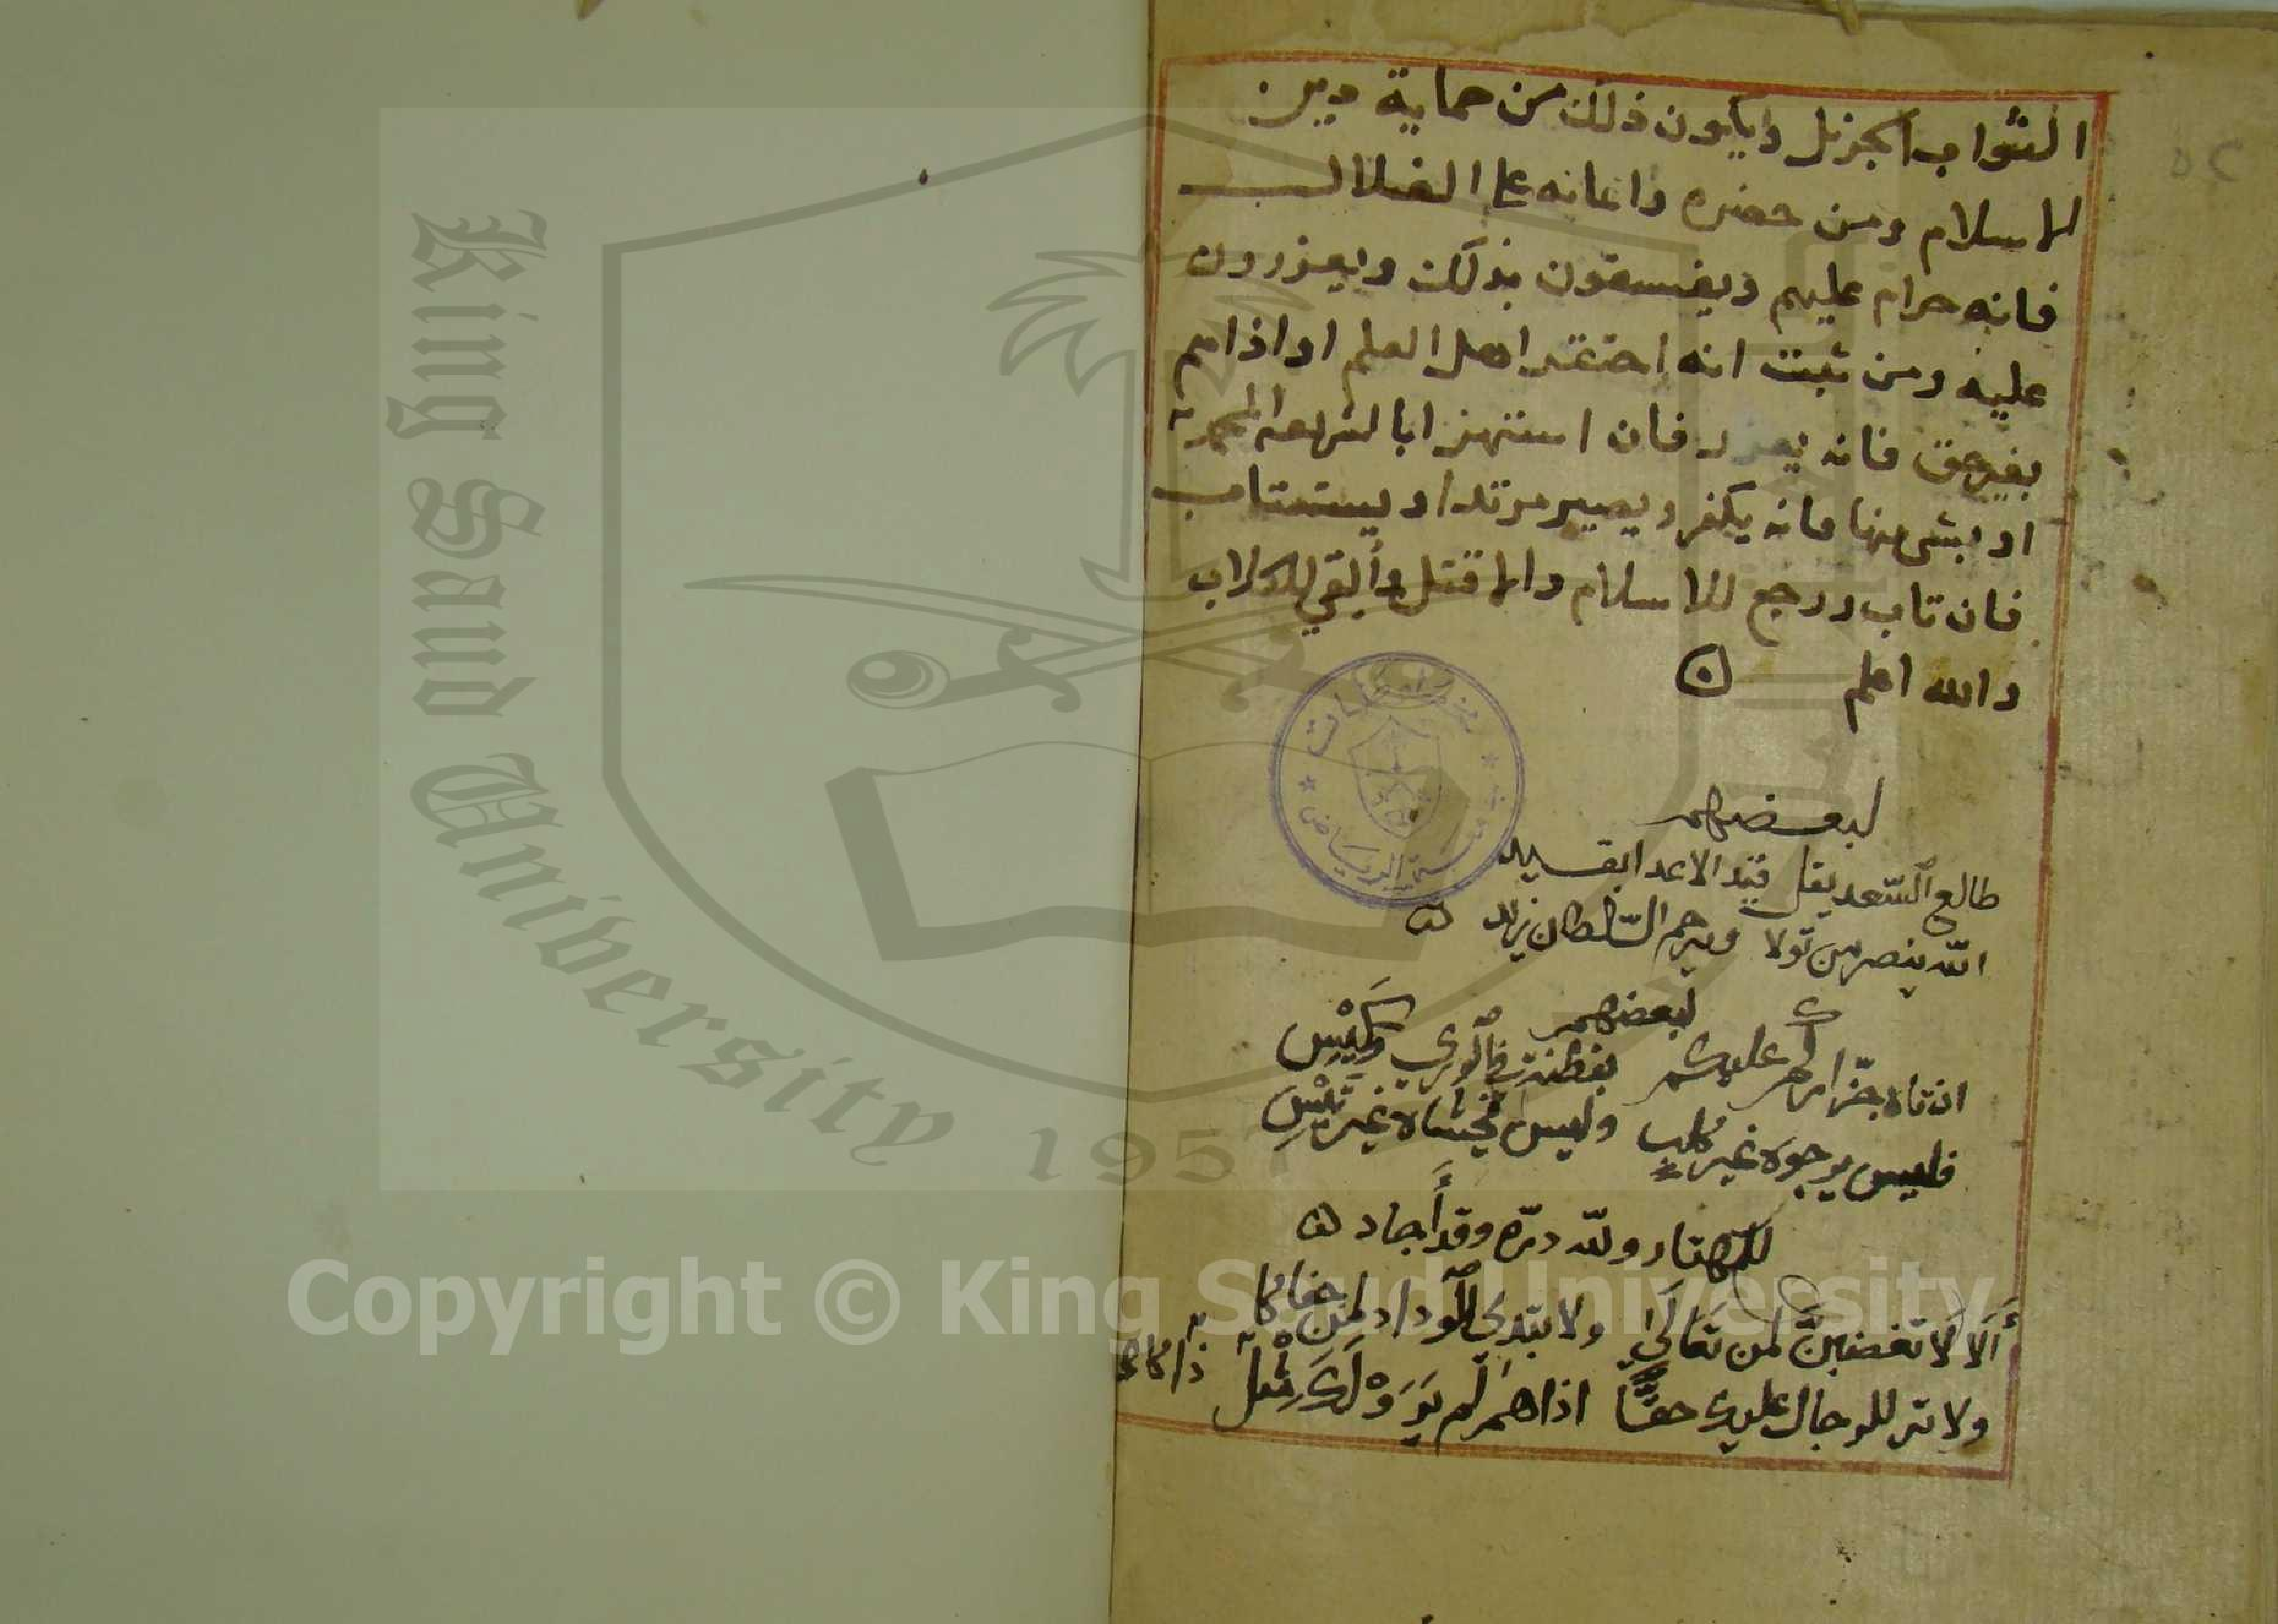 الثواب الجزيل ويكون ذلك من حماية دين
الاسلام ومن حضره واعانه على الضلال
فانه حرام عليهم ويفسقون بذلك ويعزرون
عليه ومن ثبت انه احتقر اهل العلم او اذاهم
بغير حق فانه يعزر فان استهزا بالشريعة المحمدية
او بشي منها فانه يكفر ويصير مرتدا ويستتاب
فان تاب ورجع للاسلام والا قتل وألقي للكلاب
والله اعلم
لبعضهم
طالع السّعد يقل قيّد الاعدا بقسيد
الله ينصر من تولا ويرحم السّلطان يزيد
لبعضهم
افتاه جزارهم عليكم بفطنة في الورى وكَيْسِ
فليس يرجوه غير كلب وليس يخشاه غير تَيْسِ
للمهتار ولله درّه وقد أجاد
أَلَا لَا تغضبنَّ لمن تعَالَى ولا تبدي الوداد لمن جفاكا
ولا تر للرجال عليك حقًّا اذا هم لم يَرَوْا لَكَ مثل ذاكا
King Saud University
1957
Copyright © King Saud University